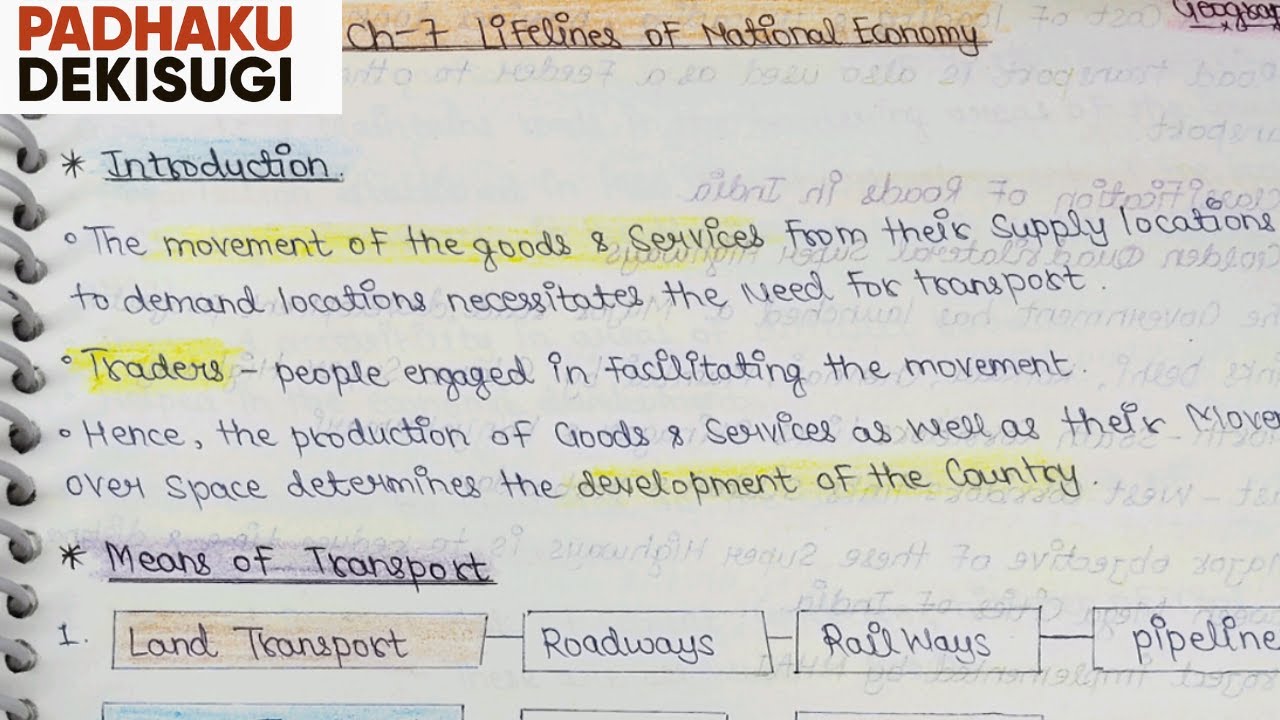 PADHAKU
DEKISUGI
Ch-7 Lifelines of National Economy
* Introduction.
• The movement of the goods & Services from their Supply locations
to demand locations necessitates the need for transport.
• Traders - people engaged in facilitating the movement.
• Hence, the production of Goods & Services as well as their Move
over space determines the development of the Country.
* Means of Transport
1. Land Transport Roadways RailWays pipeline